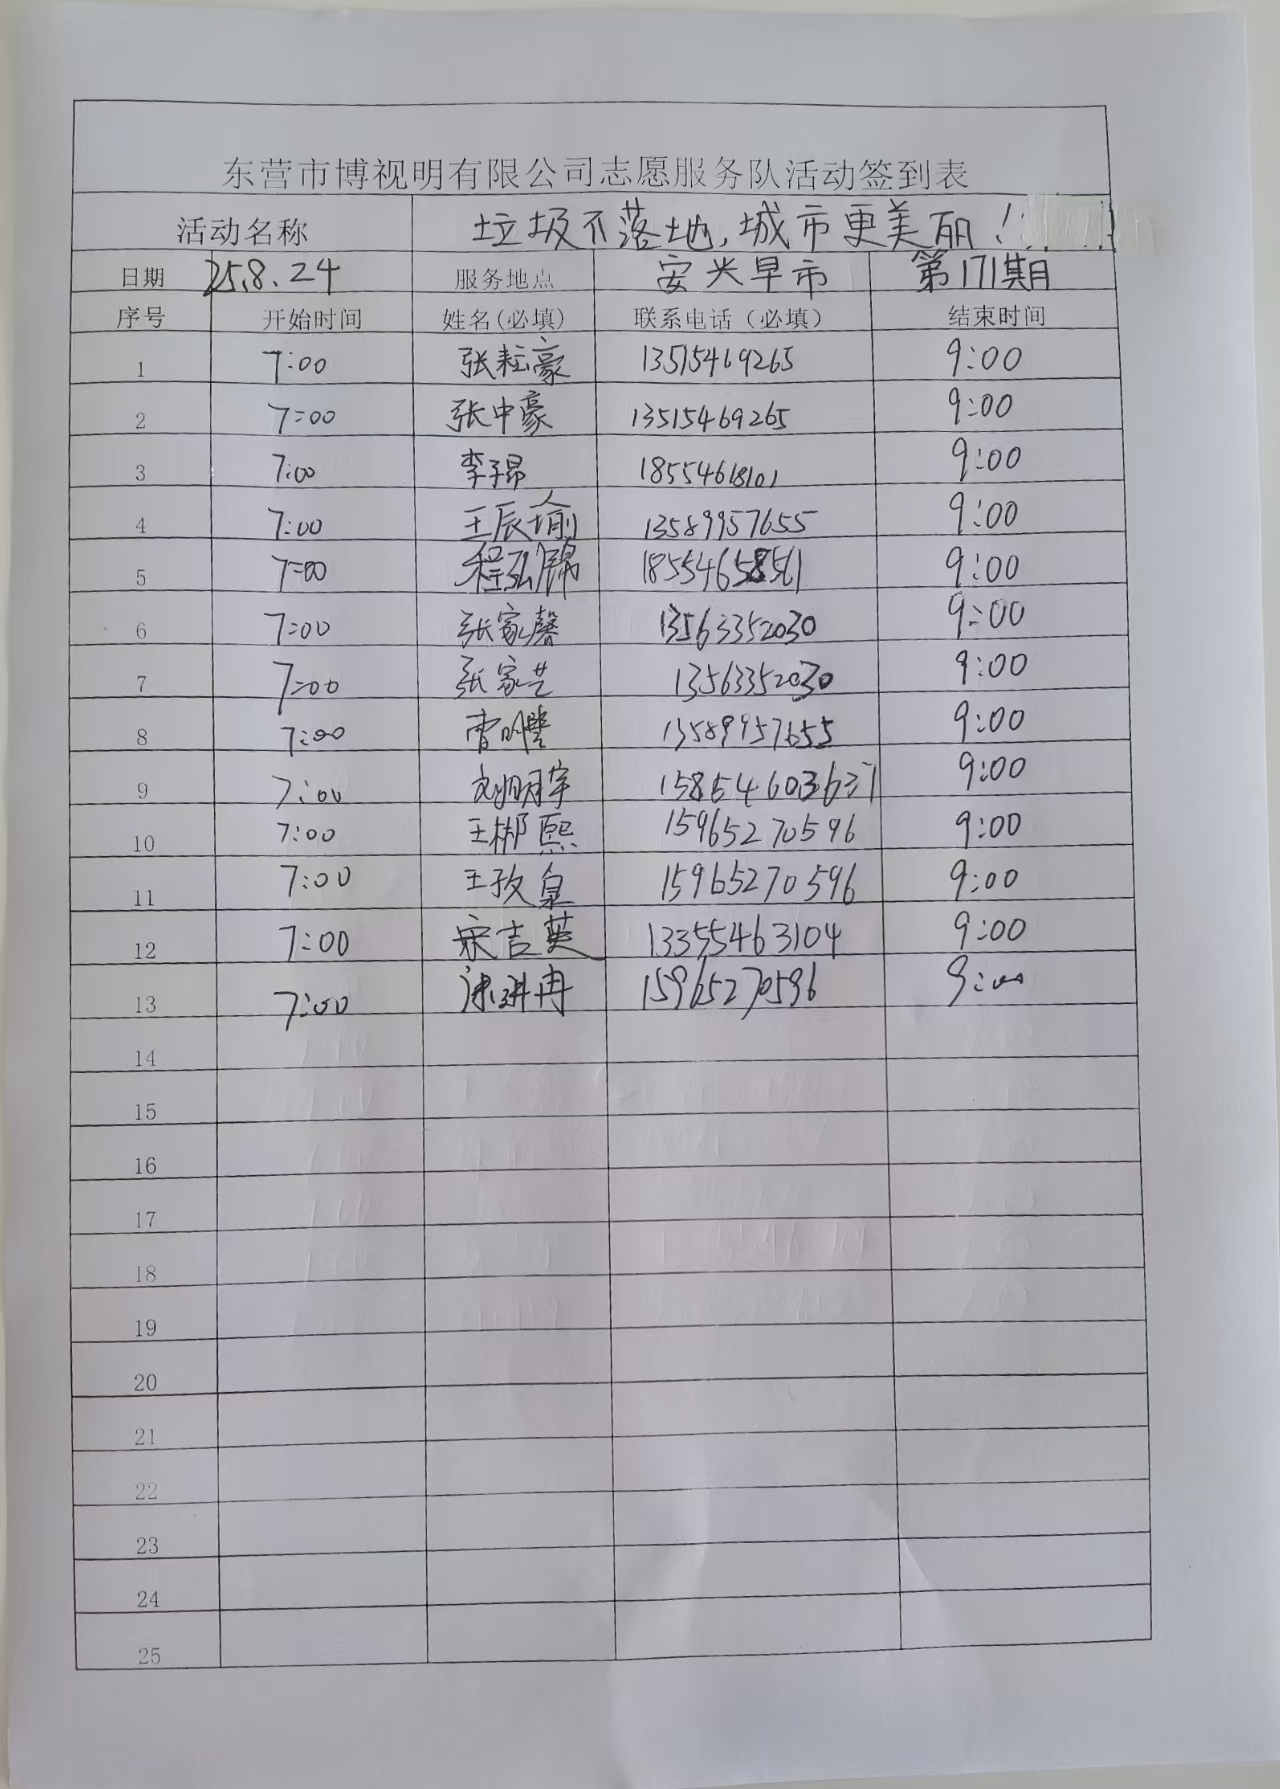 东营市博视明有限公司志愿服务队活动签到表
活动名称 垃圾不落地,城市更美丽!
日期 25.8.24 服务地点 安兴早市 第171期
序号 开始时间 姓名(必填) 联系电话（必填） 结束时间
1 7:00 张耘豪 13515469265 9:00
2 7:00 张中豪 13515469265 9:00
3 7:00 李子昂 18554618101 9:00
4 7:00 王辰瑜 13589957655 9:00
5 7:00 程弘锦 18554658561 9:00
6 7:00 张家馨 13563352030 9:00
7 7:00 张家艺 13563352030 9:00
8 7:00 曹 13589957655 9:00
9 7:00 明宇 9:00
10 7:00 王彬熙 15965270596 9:00
11 7:00 王孜 15965270596 9:00
12 7:00 宋吉英 13355463104 9:00
13 7:00 15965270596 9:00
14
15
16
17
18
19
20
21
22
23
24
25